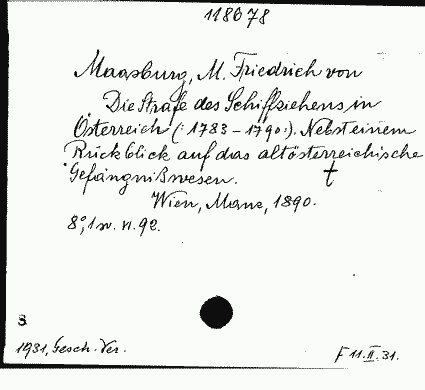 118678
Maasburg, M. Friedrich von
Die Strafe des Schiffziehens in
Österreich (: 1783 - 1790 :). Nebst einem
Rückblick auf das altösterreichische
Gefängnißwesen. t
Wien, Manz, 1890.
8°, 1 w. n. 92.
8
1931, Gesch. Ver.
F 11. II. 31.